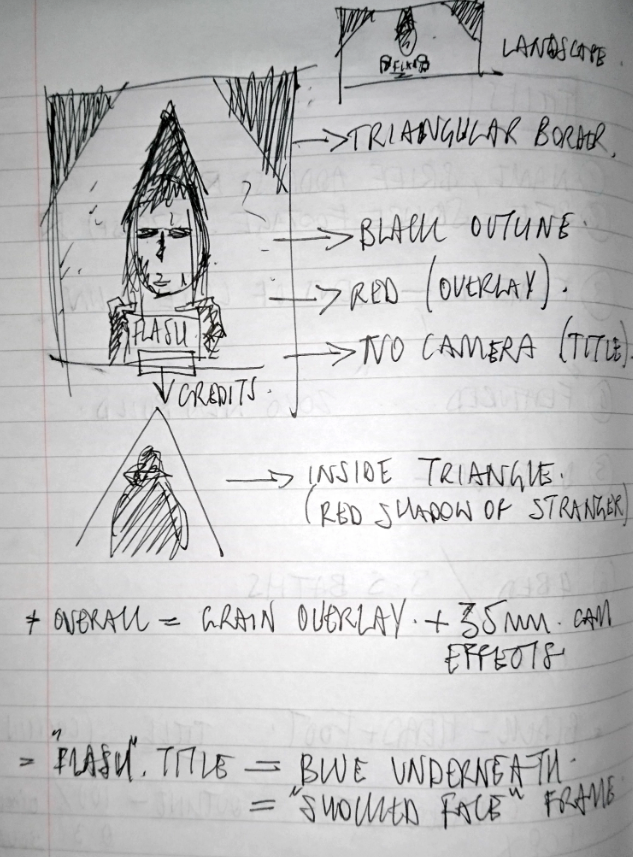 LANDSCAPE.
TRIANGULAR BORDER.
BLACK OUTLINE.
RED (OVERLAY).
FLASH
NO CAMERA (TITLE).
CREDITS.
INSIDE TRIANGLE.
(RED SHADOW OF STRANGER)
+ OVERALL = GRAIN OVERLAY. + 35mm. CAM
EFFECTS
"FLASH". TITLE = BLUE UNDERNEATH.
= "SHOCKED FACE" FRAME